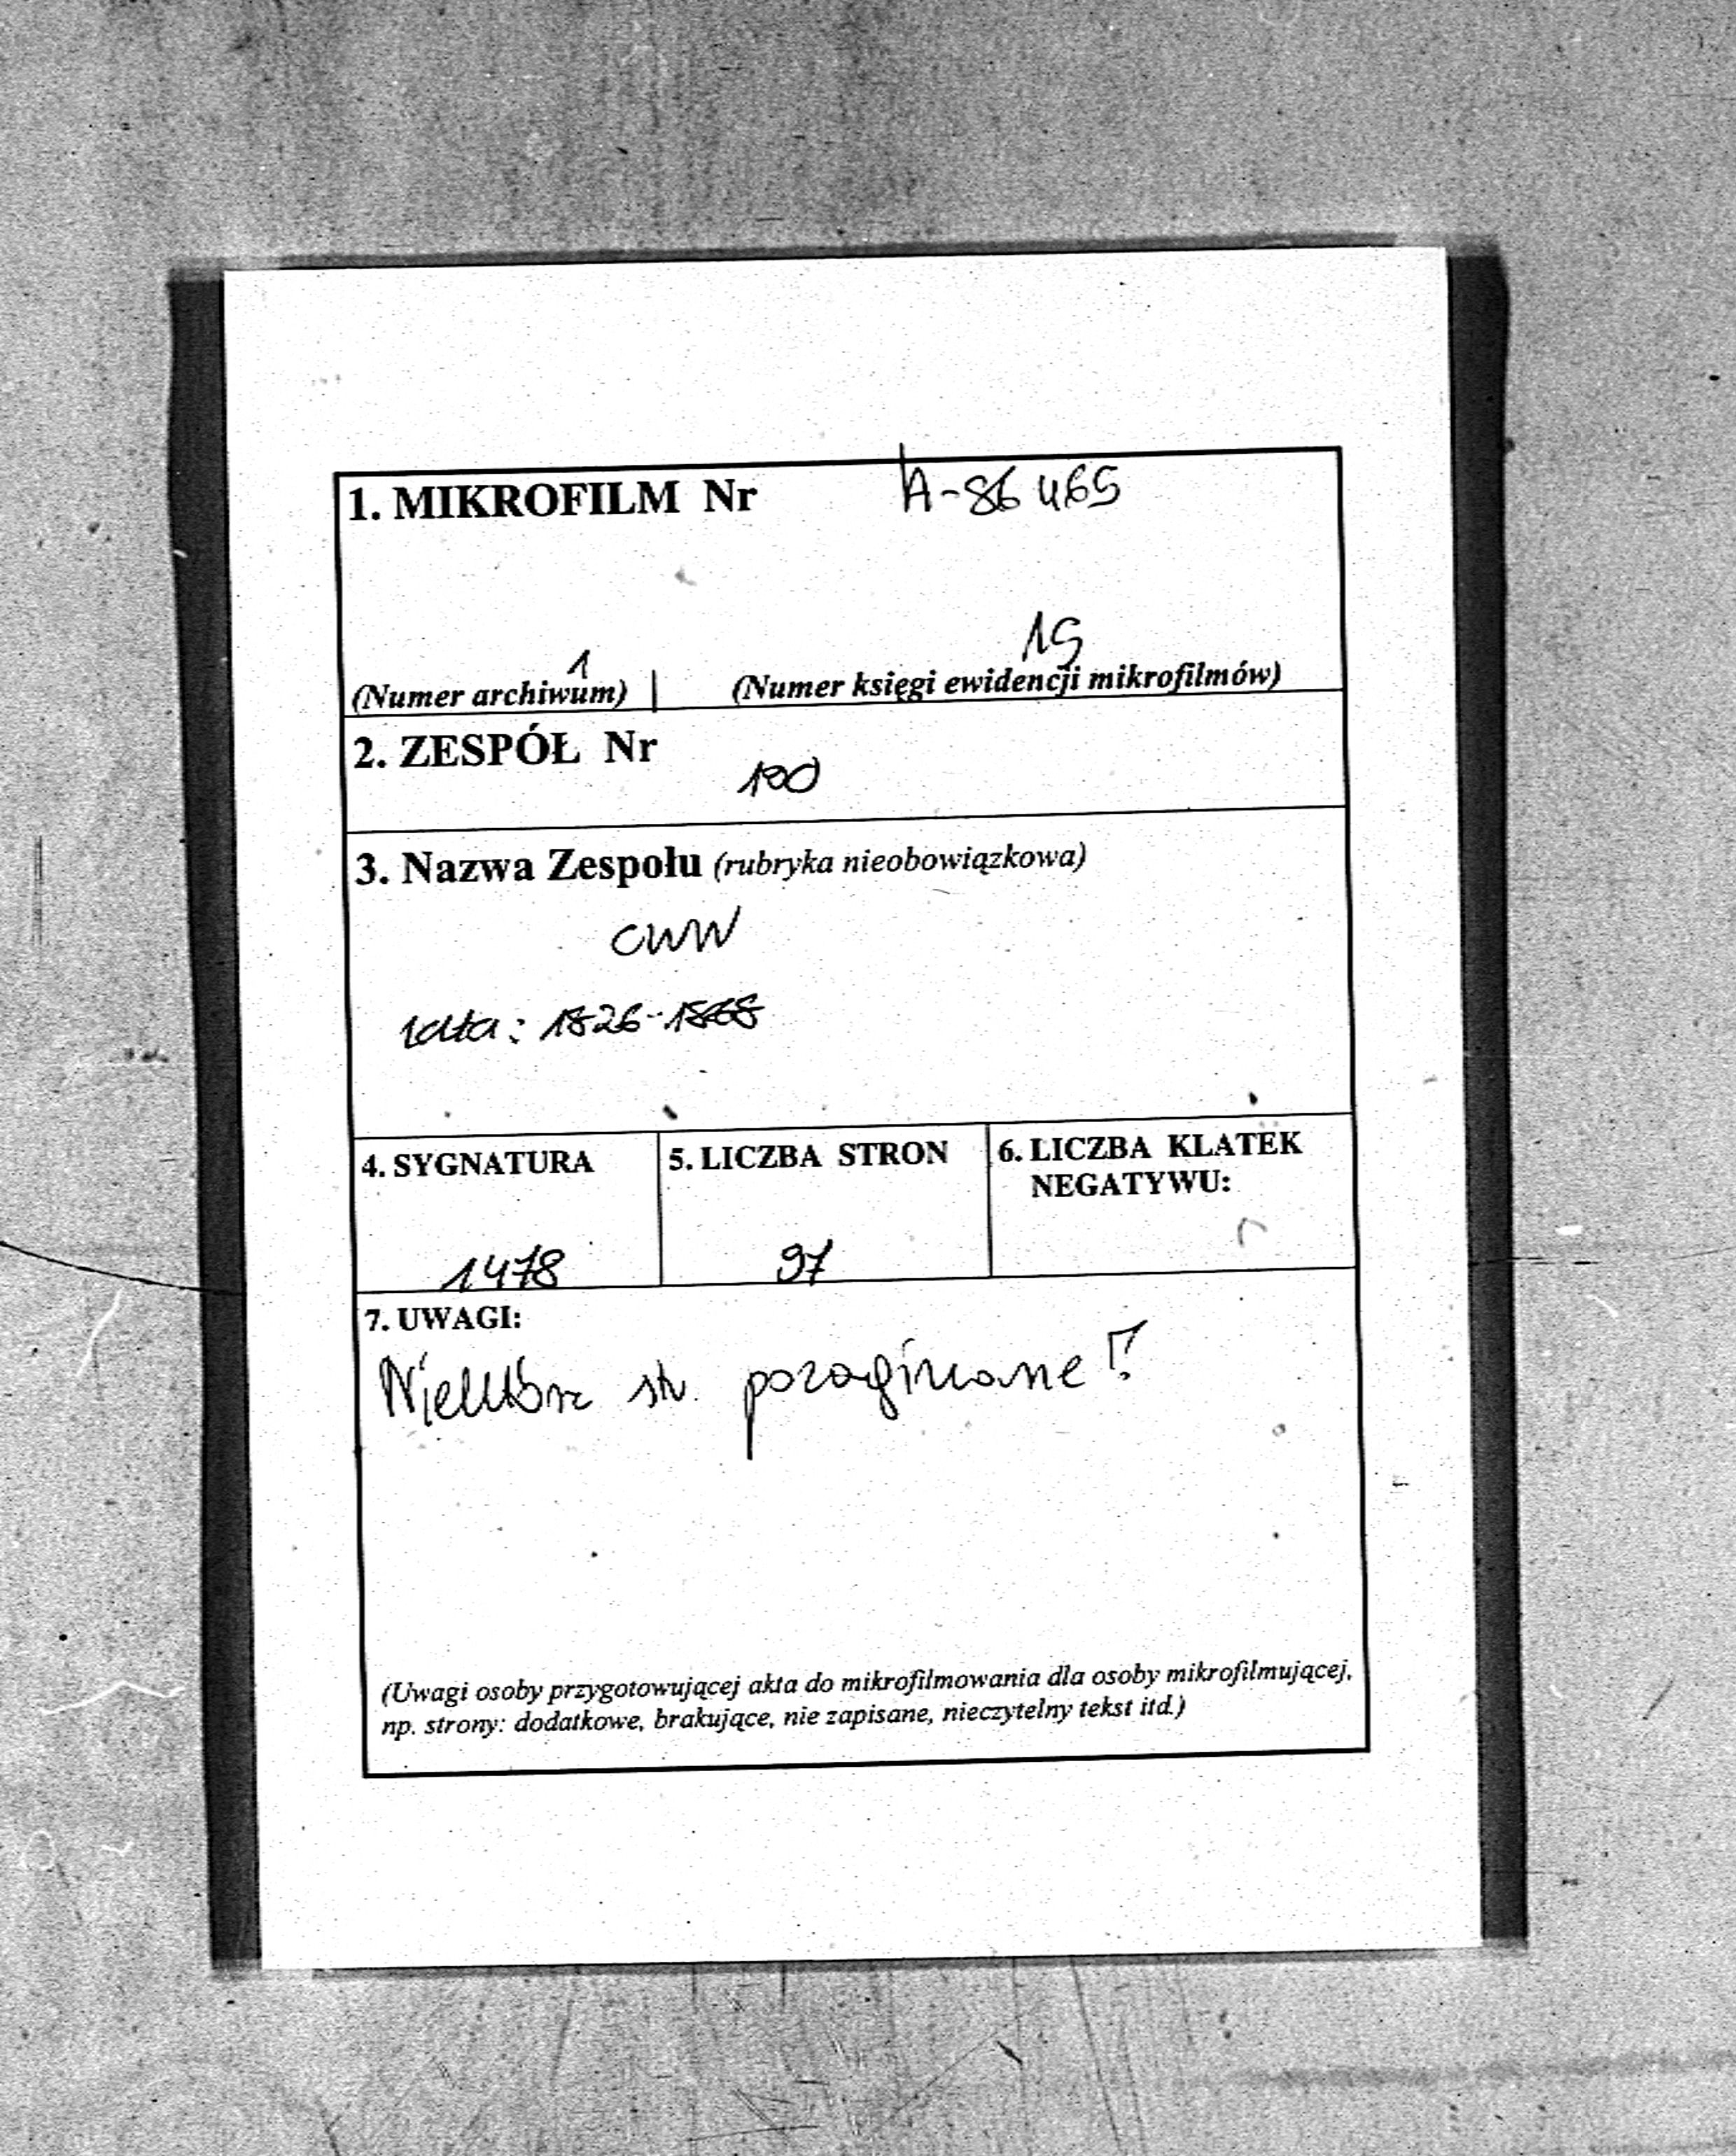 1. MIKROFILM Nr A-86 465
1 15
(Numer archiwum) | (Numer księgi ewidencji mikrofilmów)
2. ZESPÓŁ Nr
190
3. Nazwa Zespołu (rubryka nieobowiązkowa)
CWW
lata: 1826-1868
4. SYGNATURA 5. LICZBA STRON 6. LICZBA KLATEK
NEGATYWU:
1478 97
7. UWAGI:
Niektóre str. pozaginane!
(Uwagi osoby przygotowującej akta do mikrofilmowania dla osoby mikrofilmującej,
np. strony: dodatkowe, brakujące, nie zapisane, nieczytelny tekst itd.)